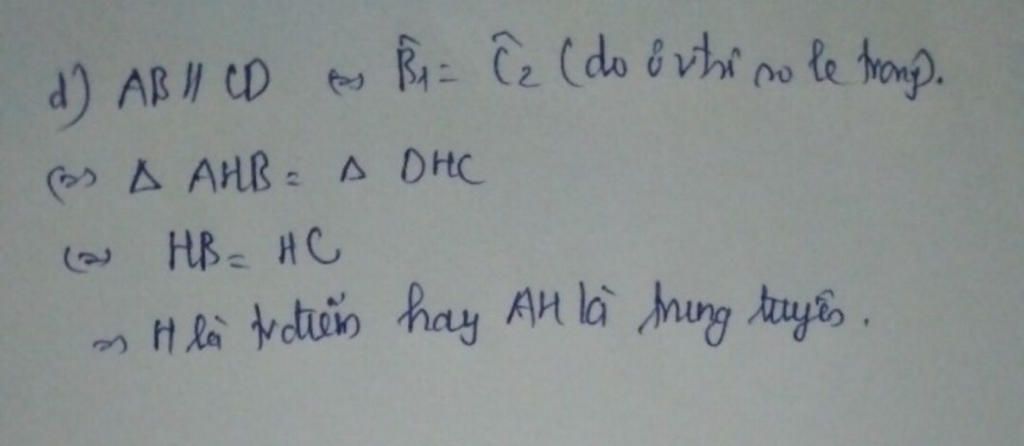 d) AB // CD ⇔ B̂₁ = Ĉ₂ (do ở vtrí so le trong).
⇔ Δ AHB = Δ DHC
⇔ HB = HC
⇒ H là tr điểm hay AH là trung tuyến.